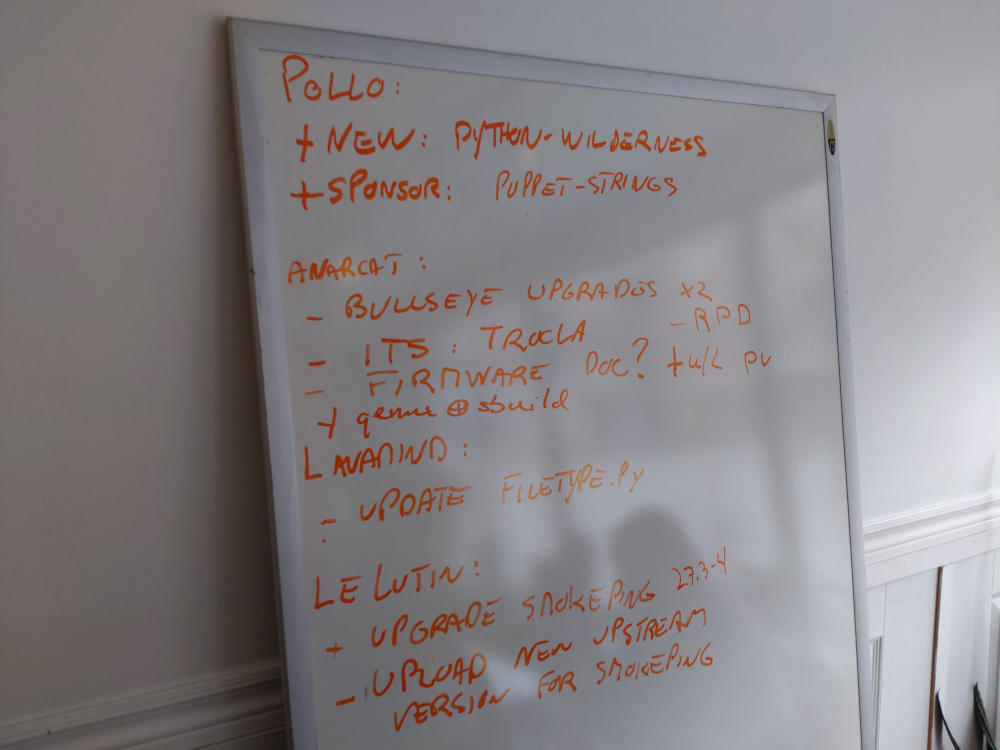 POLLO:
+ NEW: PYTHON-WILDERNESS
+ SPONSOR: PUPPET-STRINGS
ANARCAT:
- BULLSEYE UPGRADOS x2
- ITS: TROCLA - RPD
- FIRMWARE DOC? + w/L pv
+ qemu ⊕ sbuild
LAVAMIND:
- UPDATE FILETYPE.PY
-
LELUTIN:
+ UPGRADE SMOKEPING 2.7.3-4
- UPLOAD NEW UPSTREAM
VERSION FOR SMOKEPING